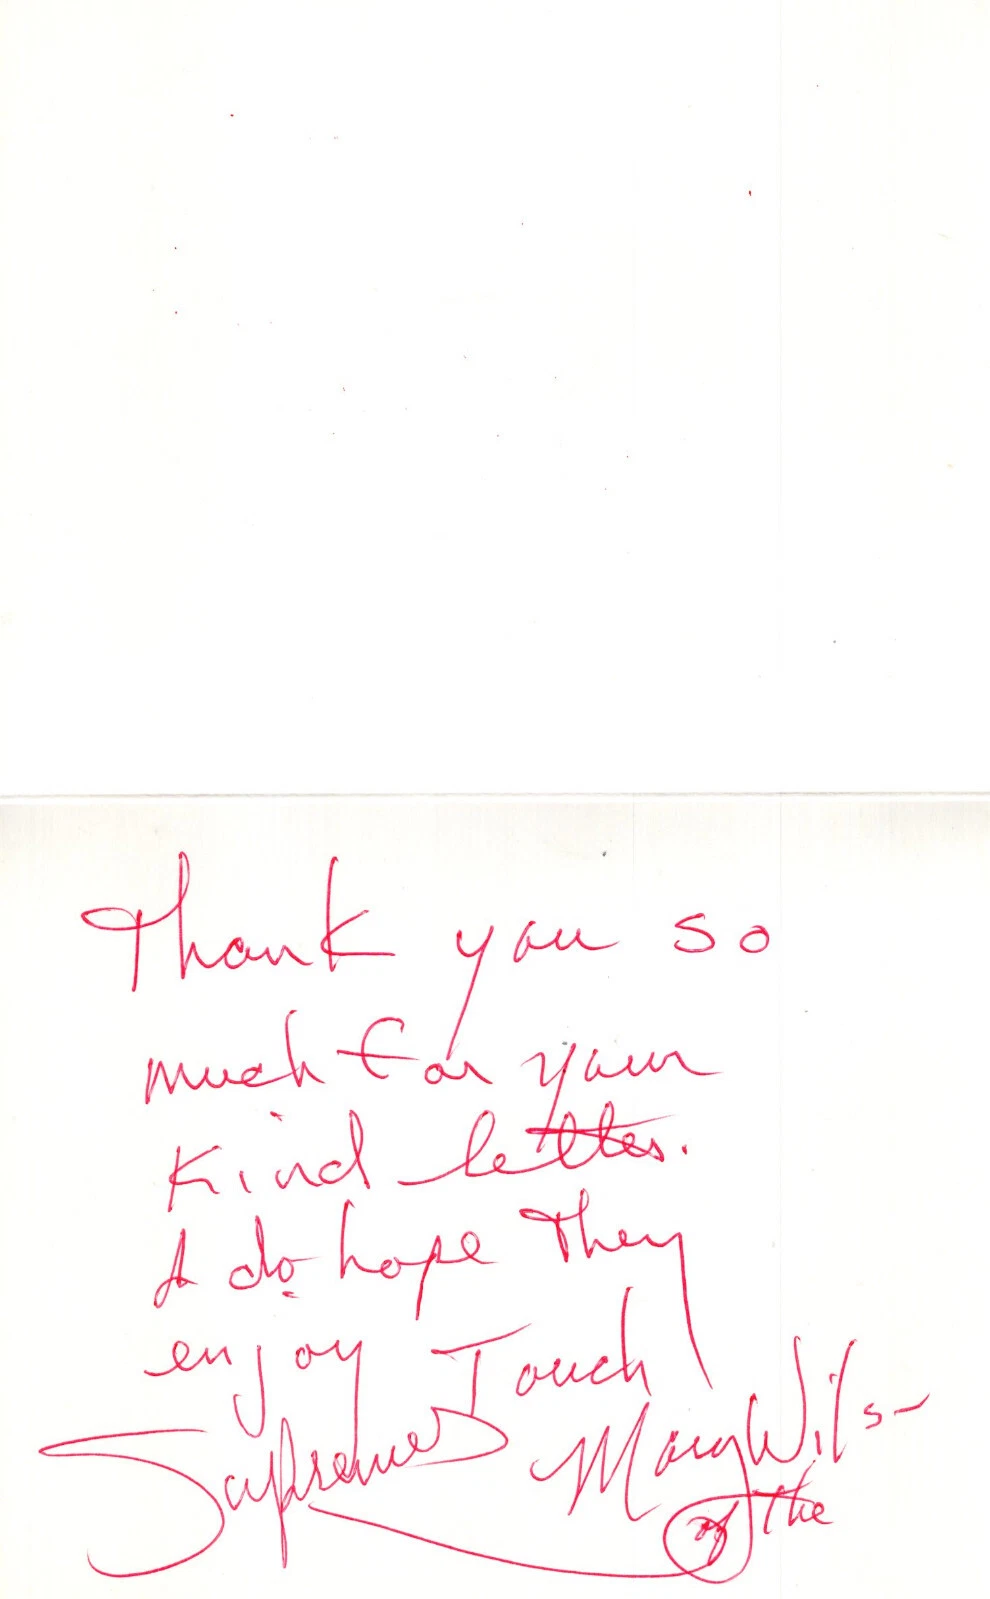 Thank you so
much for your
kind letter.
I do hope they
enjoy Touch
Mary Wilson
of the
Supremes